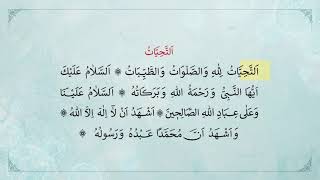 اَلتَّحِيَّاتُ
اَلتَّحِيَّاتُ لِلّٰهِ وَالصَّلَوَاتُ وَالطَّيِّبَاتُ ۞ اَلسَّلَامُ عَلَيْكَ
اَيُّهَا النَّبِيُّ وَرَحْمَةُ اللهِ وَبَرَكَاتُهُ ۞ اَلسَّلَامُ عَلَيْنَا
وَعَلٰى عِبَادِ اللهِ الصَّالِحِينَ ۞ اَشْهَدُ اَنْ لَا اِلٰهَ اِلَّا اللهُ ۞
وَ اَشْهَدُ اَنَّ مُحَمَّدًا عَبْدُهُ وَرَسُولُهُ ۞